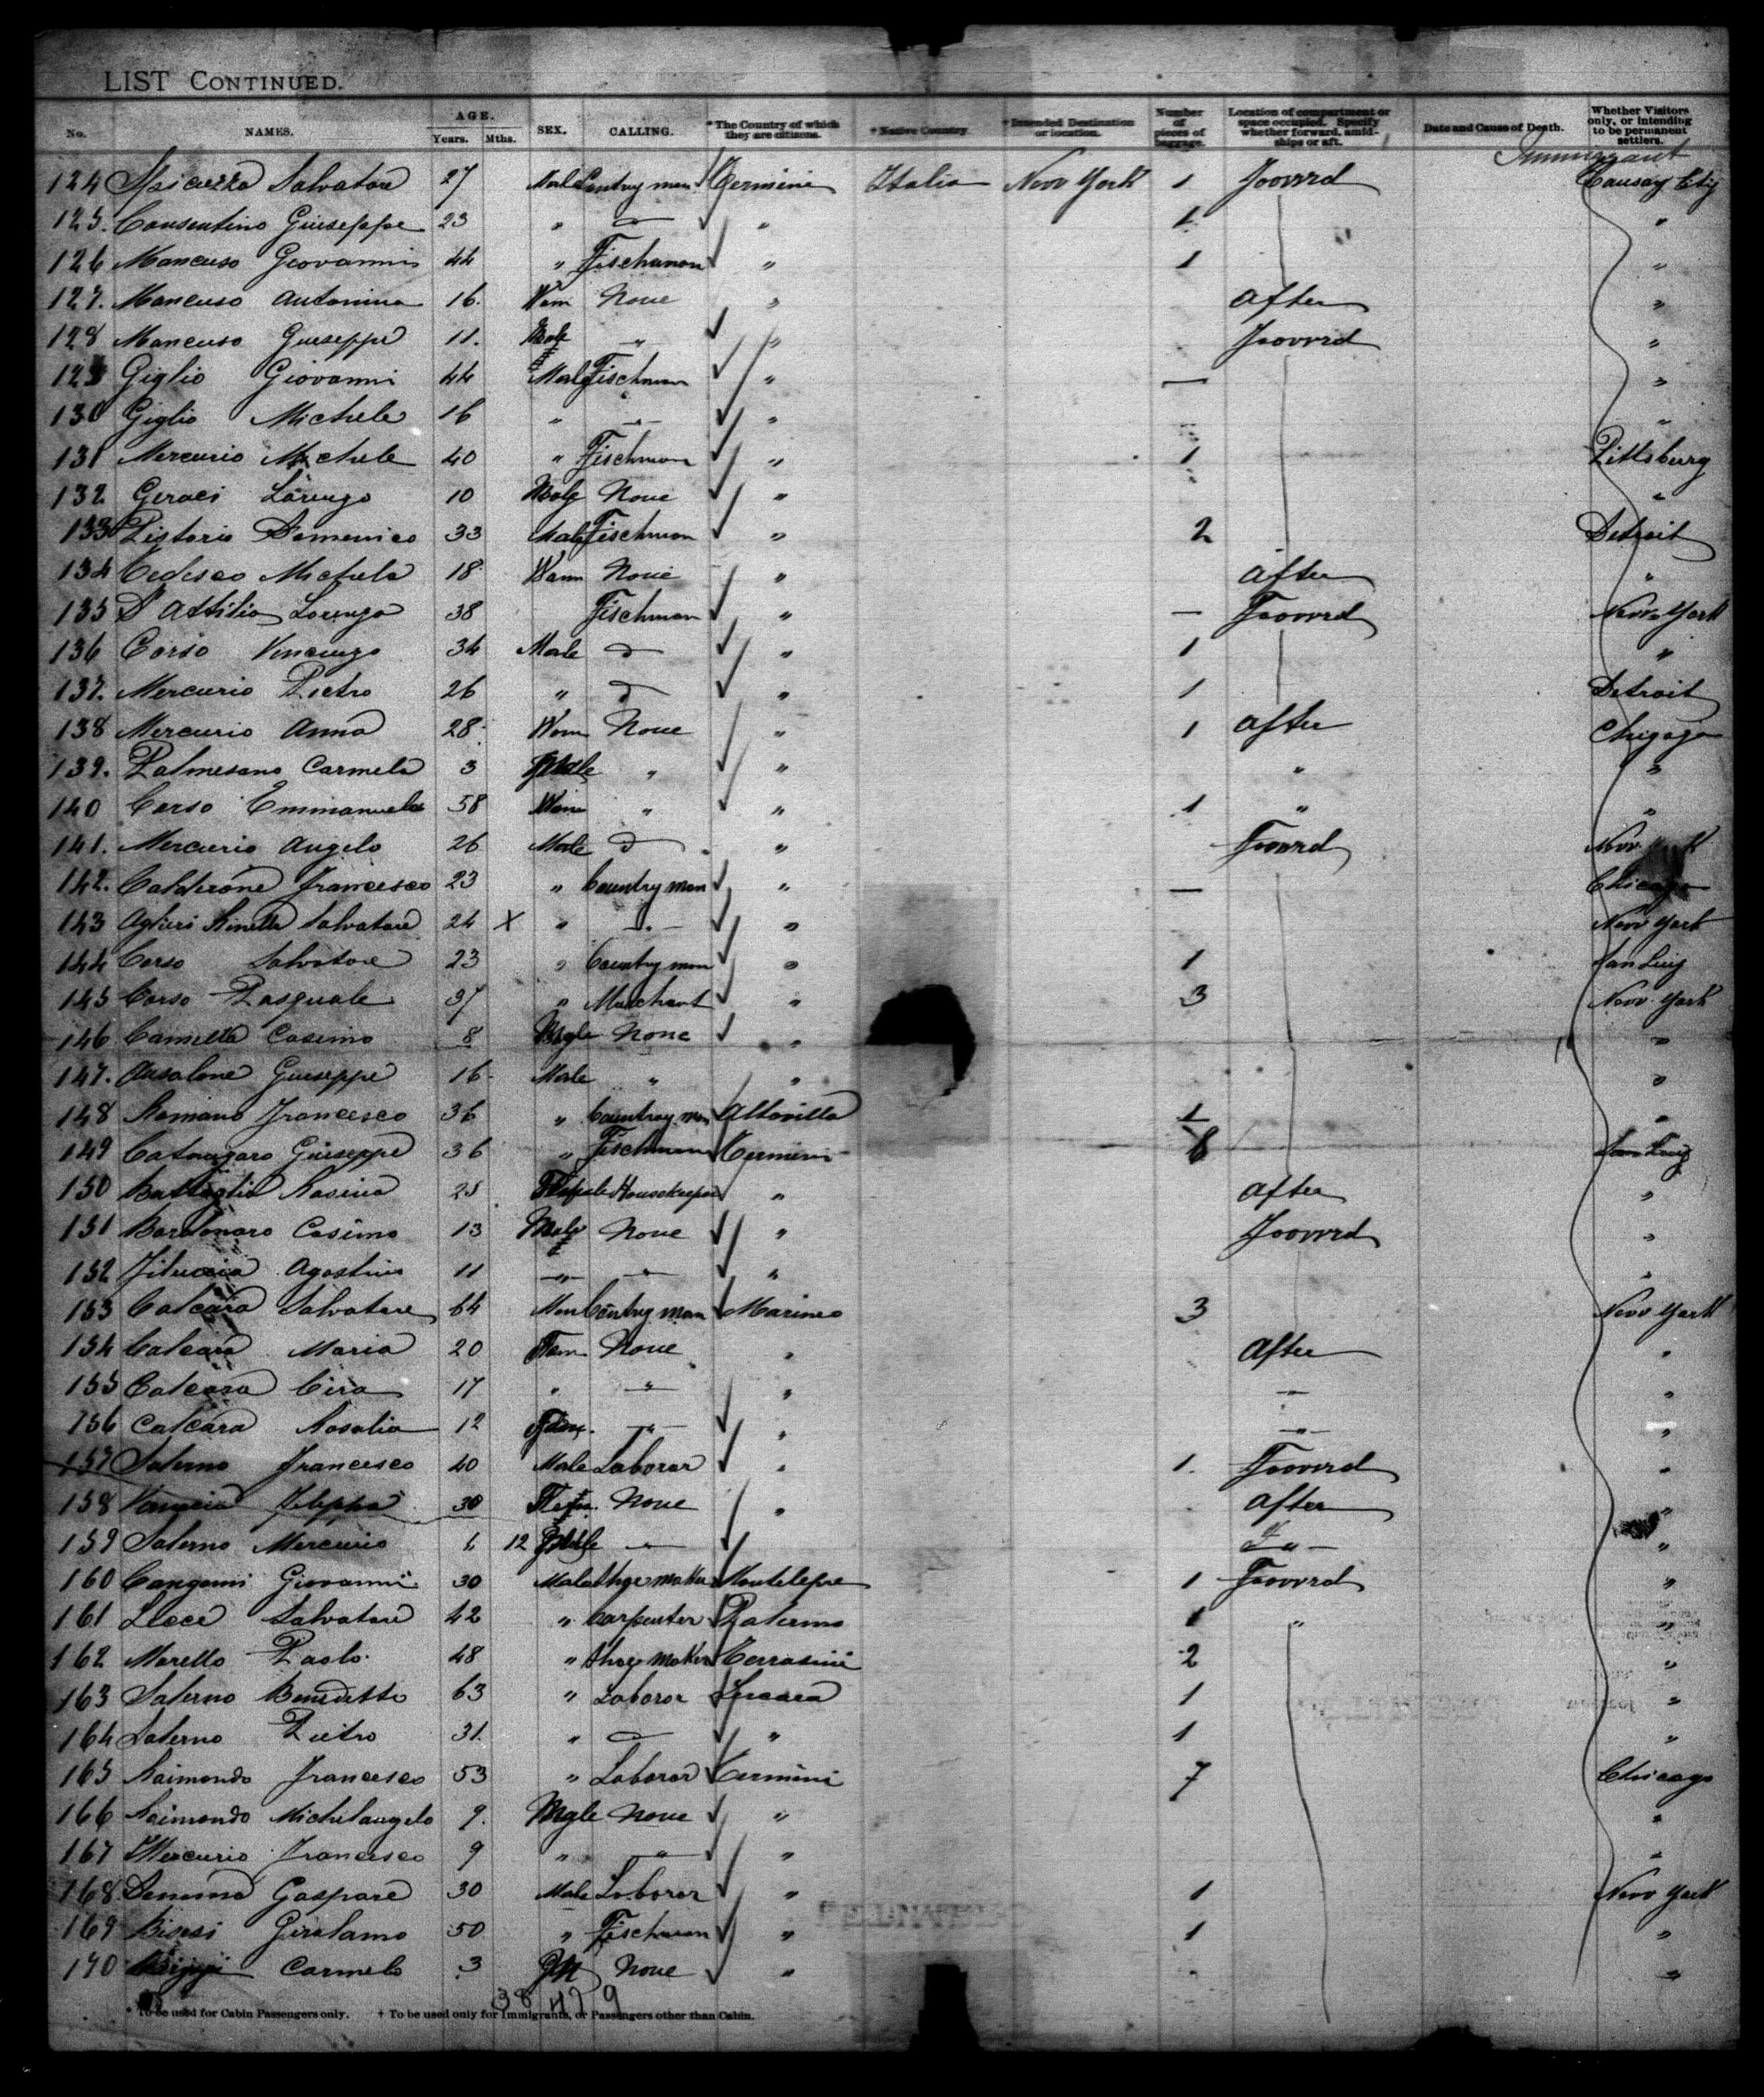 LIST CONTINUED.
No. NAMES. AGE. Years. Mths. SEX. CALLING. *The Country of which they are citizens. †Native Country †Intended Destination or location. Number of pieces of baggage. Location of compartment or space occupied. Specify whether forward, amidships or aft. Date and Cause of Death. Whether Visitors only, or intending to be permanent settlers.
Immigrant
124 Salvatore 27 Male Contry man Termini Italia New York 1 Foowrd Causay City
125. Consentino Giuseppe 23 " " 1 "
126 Mancuso Giovanni 44 " Fischman " 1 "
127. Mancuso Antonina 16. Wom None " After "
128 Mancuso Giuseppe 11. Male " " Foowrd "
129 Giglio Giovanni 44 Male Fischman " — "
130 Giglio Michele 16 " " " "
131 Mercurio Michele 40 " Fischman " 1 Pittsburg
132 Geraci Lorenzo 10 Male None " "
133 Pistorio Domenico 33 Male Fischman " 2 Detroit
134 Tedesco Michela 18 Wom None " After "
135 D'Attilio Lorenzo 38 Fischman " — Foowrd New York
136 Corso Vincenzo 34 Male " 1 "
137. Mercurio Pietro 26 " " 1 Detroit
138 Mercurio Anna 28 Wom None " 1 After Chigago
139. Palmesano Carmela 3 " " " "
140 Corso Emmanuela 58 Wom " " 1 " "
141. Mercurio Angelo 26 Male " Foowrd New York
142. Calderone Francesco 23 " Country man " — Chicago
143 Aglieri Rinella Salvatore 24 X " " " New York
144 Corso Salvatore 23 " Country man " 1 San Luig
145 Corso Pasquale 37 " Marchant " 3 New York
146 Cosimo 8 Male None " "
147. Ansalone Giuseppe 16 Male " " "
148 Romano Francesco 36 " Country man Altavilla 1 "
149 Catanzaro Giuseppe 36 " Fischman Termini San Luig
150 Battaglia Rosina 25 Female Housekeeper " After "
151 Bordonaro Cosimo 13 Male None " Foowrd "
152 Agostino 11 " " " "
153 Calcara Salvatore 64 Man Contry man Marineo 3 New York
154 Calcara Maria 20 Fem None " After "
155 Calcara Cira 17 " " " "
156 Calcara Rosalia 12 Fem. " " " "
157 Salerno Francesco 40 Male Laborar " 1. Foowrd "
158 30 None " After "
159 Salerno Mercurio 12 " " "
160 Cangemi Giovanni 30 Male Shoe maker Montelepre 1 Foowrd "
161 Salvatore 42 " Carpenter Palermo 1 " "
162 Morello Paolo 48 " Shoe maker Terrasini 2 "
163 Salerno Benedetto 63 " Laborar Lercara 1 "
164 Salerno Pietro 31. " " 1 "
165 Raimondo Francesco 53 " Laborar Termini 7 Chicago
166 Raimondo Michelangelo 9. Male None " "
167 Mercurio Francesco 9 " " " "
168 Gaspare 30 Male Laborar " 1 New York
169 Bisesi Girolamo 50 " Fischman " 1 "
170 Carmelo 3 None " "
38479
* To be used for Cabin Passengers only. † To be used only for Immigrants, or Passengers other than Cabin.